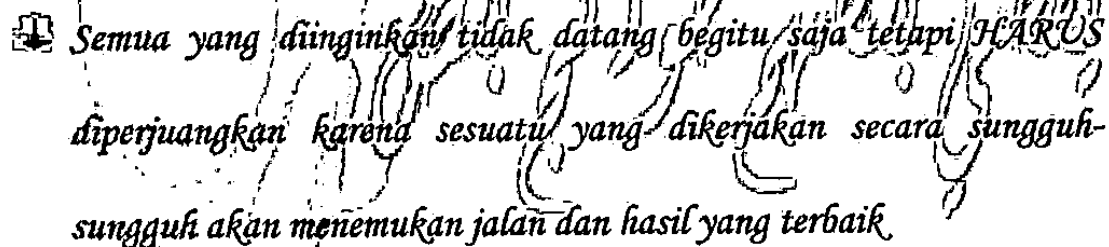 Semua yang diinginkan tidak datang begitu saja tetapi HARUS
diperjuangkan karena sesuatu yang dikerjakan secara sungguh-
sungguh akan menemukan jalan dan hasil yang terbaik